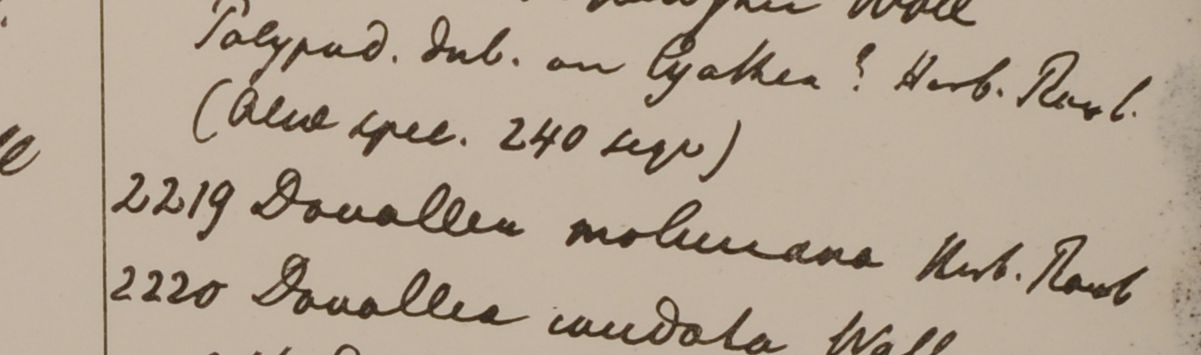 Wall
Polypod. dub. an Cyathea? Herb. Roxb.
(Alia spec. 240 seqv)
2219 Davallea moluccana Herb. Roxb
2220 Davallea caudata Wall